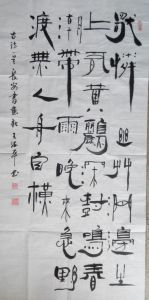 獨憐幽艸澗邊生
上有黃鸝深樹鳴春
潮帶雨晚来急野
渡無人舟自橫
古詩一首